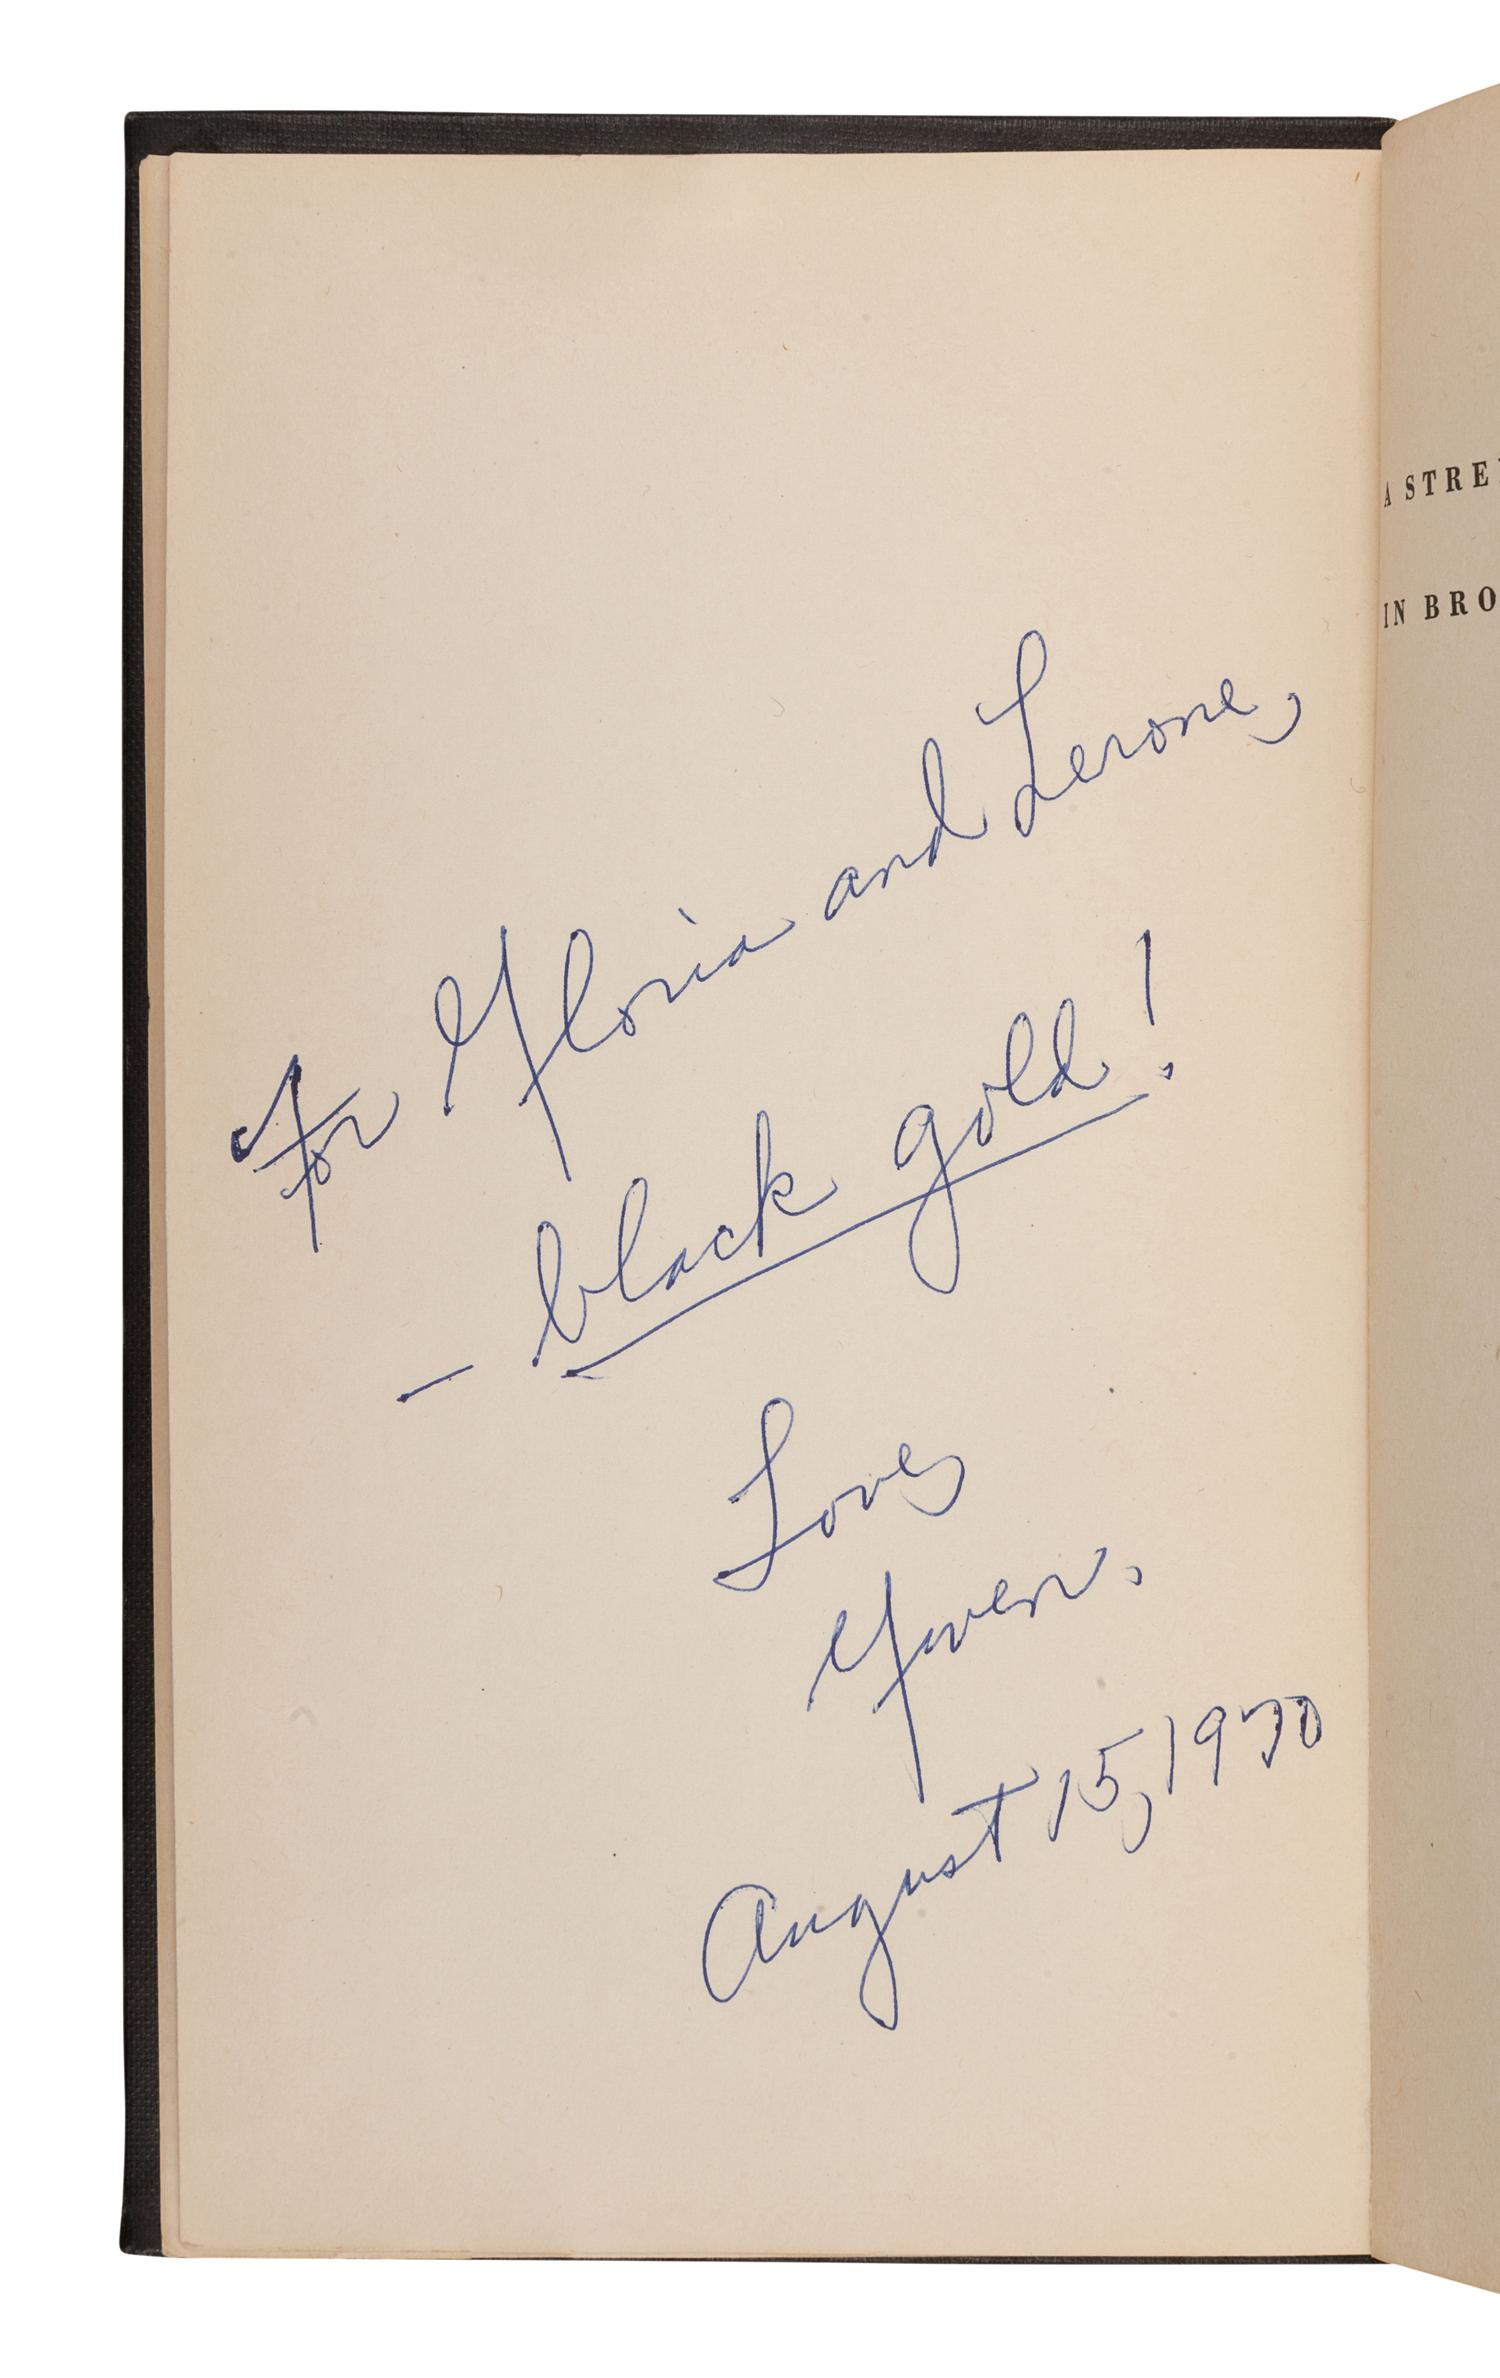 For Gloria and Lerone,
– black gold!
Love,
Gwen.
August 15, 1970
A STRE
IN BRO